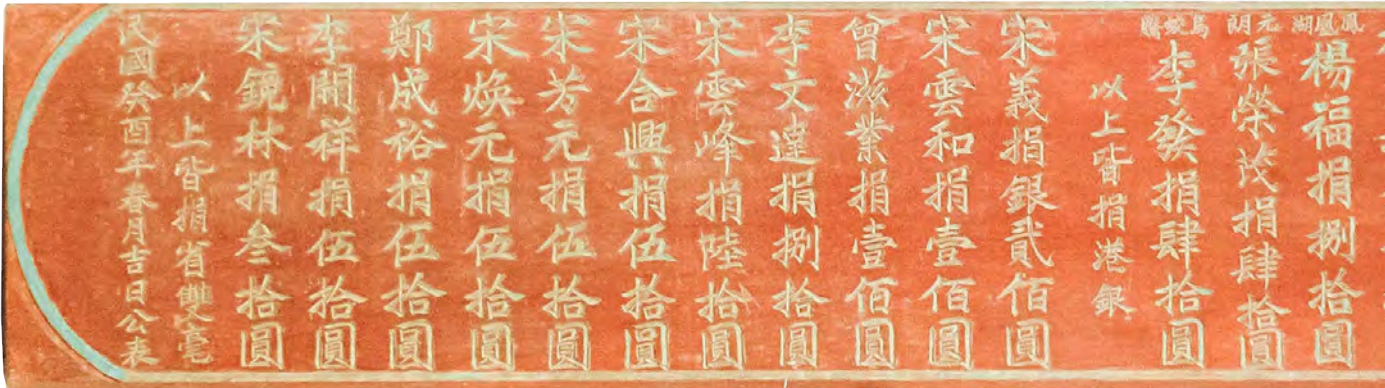 鳳凰湖楊福捐捌拾圓
元朗張榮茂捐肆拾圓
烏蛟騰李發捐肆拾圓
以上皆捐港銀
宋義捐銀貳佰圓
宋雲和捐壹佰圓
曾滋業捐壹佰圓
李文達捐捌拾圓
宋雲峰捐陸拾圓
宋合興捐伍拾圓
宋芳元捐伍拾圓
宋煥元捐伍拾圓
鄭成裕捐伍拾圓
李開祥捐伍拾圓
宋鏡林捐叁拾圓
以上皆捐省雙毫
民國癸酉年春月吉日公表